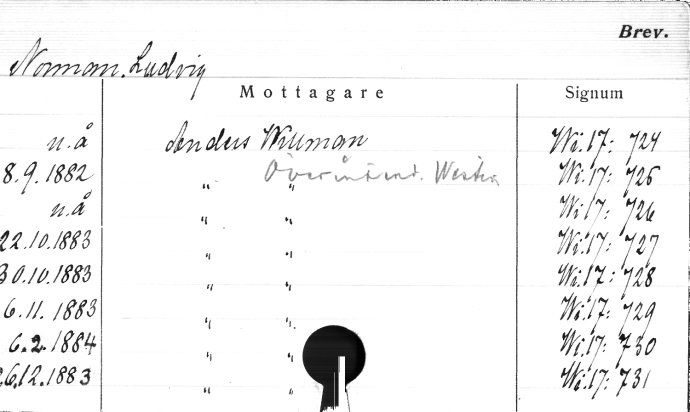 Brev.
Norman, Ludvig
Mottagare Signum
n.å Anders Willman Wi.17: 724
8.9.1882 " " Wi.17: 725
n.å " " Wi.17: 726
22.10.1883 " " Wi.17: 727
30.10.1883 " " Wi.17: 728
6.11.1883 " " Wi.17: 729
6.2.1884 " " Wi.17: 730
26.12.1883 " " Wi.17: 731